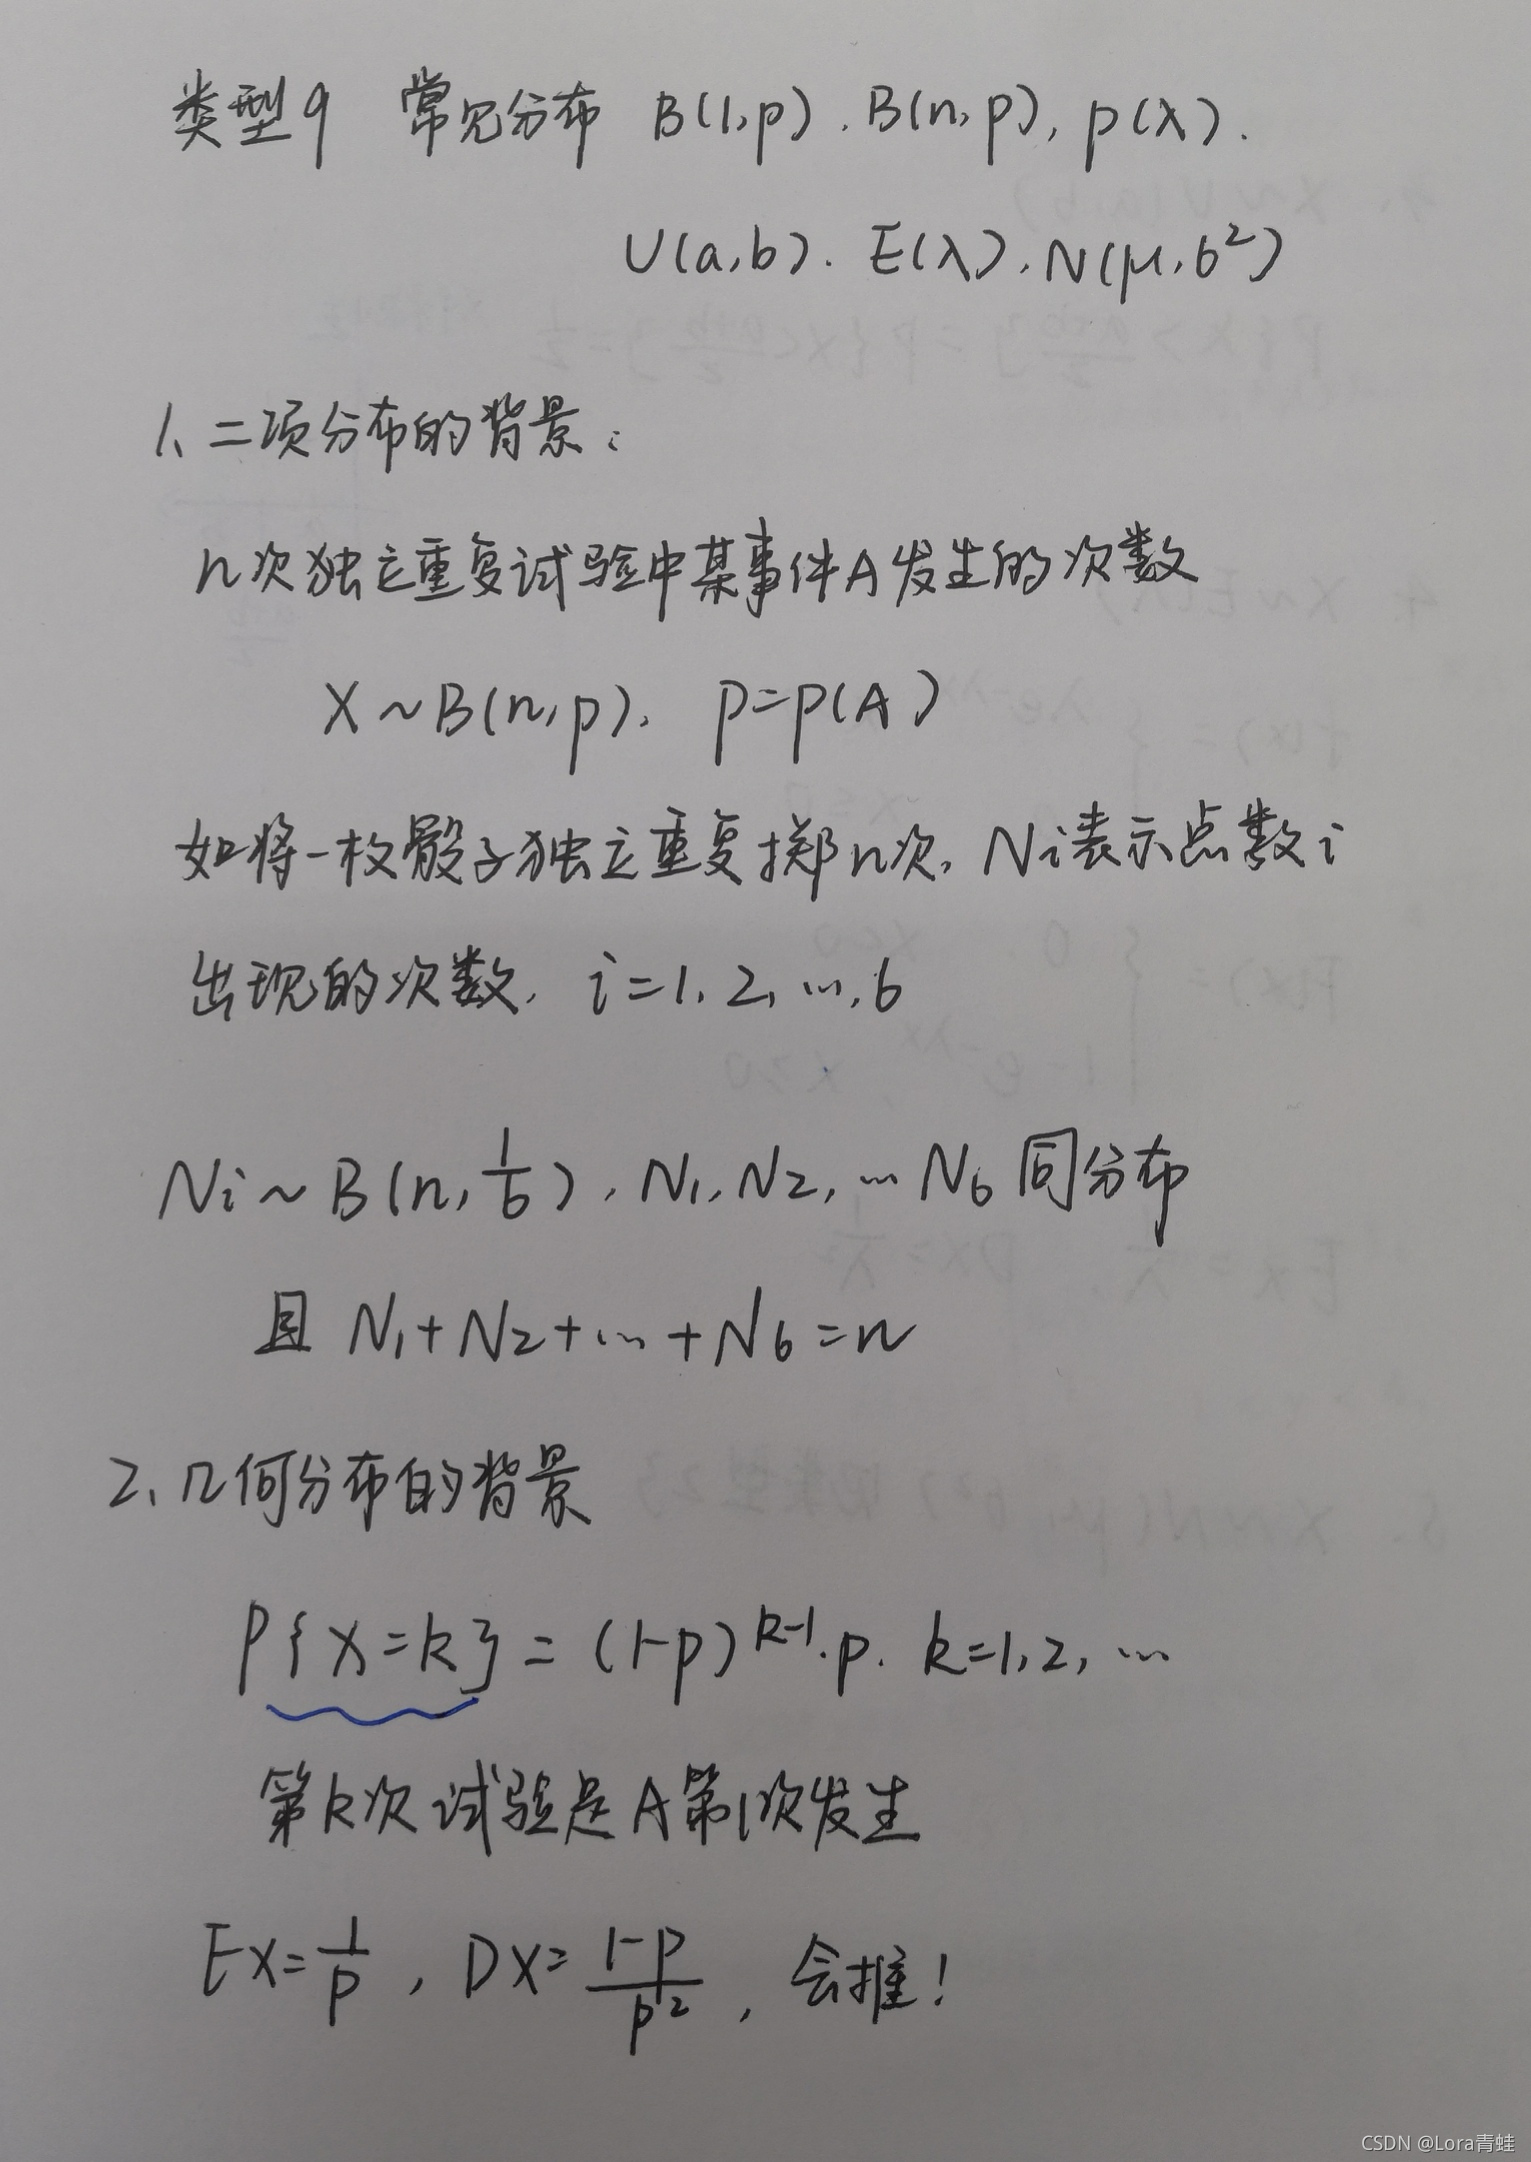 类型9 常见分布 B(1,p), B(n,p), p(λ).
U(a,b). E(λ), N(μ,σ²)
1、二项分布的背景:
n次独立重复试验中某事件A发生的次数
X~B(n,p), p=p(A)
如将一枚骰子独立重复掷n次, Ni表示点数i
出现的次数, i=1,2,…,6
Ni~B(n,1/6), N1,N2,…N6同分布
且 N1+N2+…+N6=n
2、几何分布的背景
P{X=k}=(1-p)^(k-1)·p. k=1,2,…
第k次试验是A第1次发生
EX=1/p, DX=(1-p)/p², 会推!
CSDN @Lora青蛙